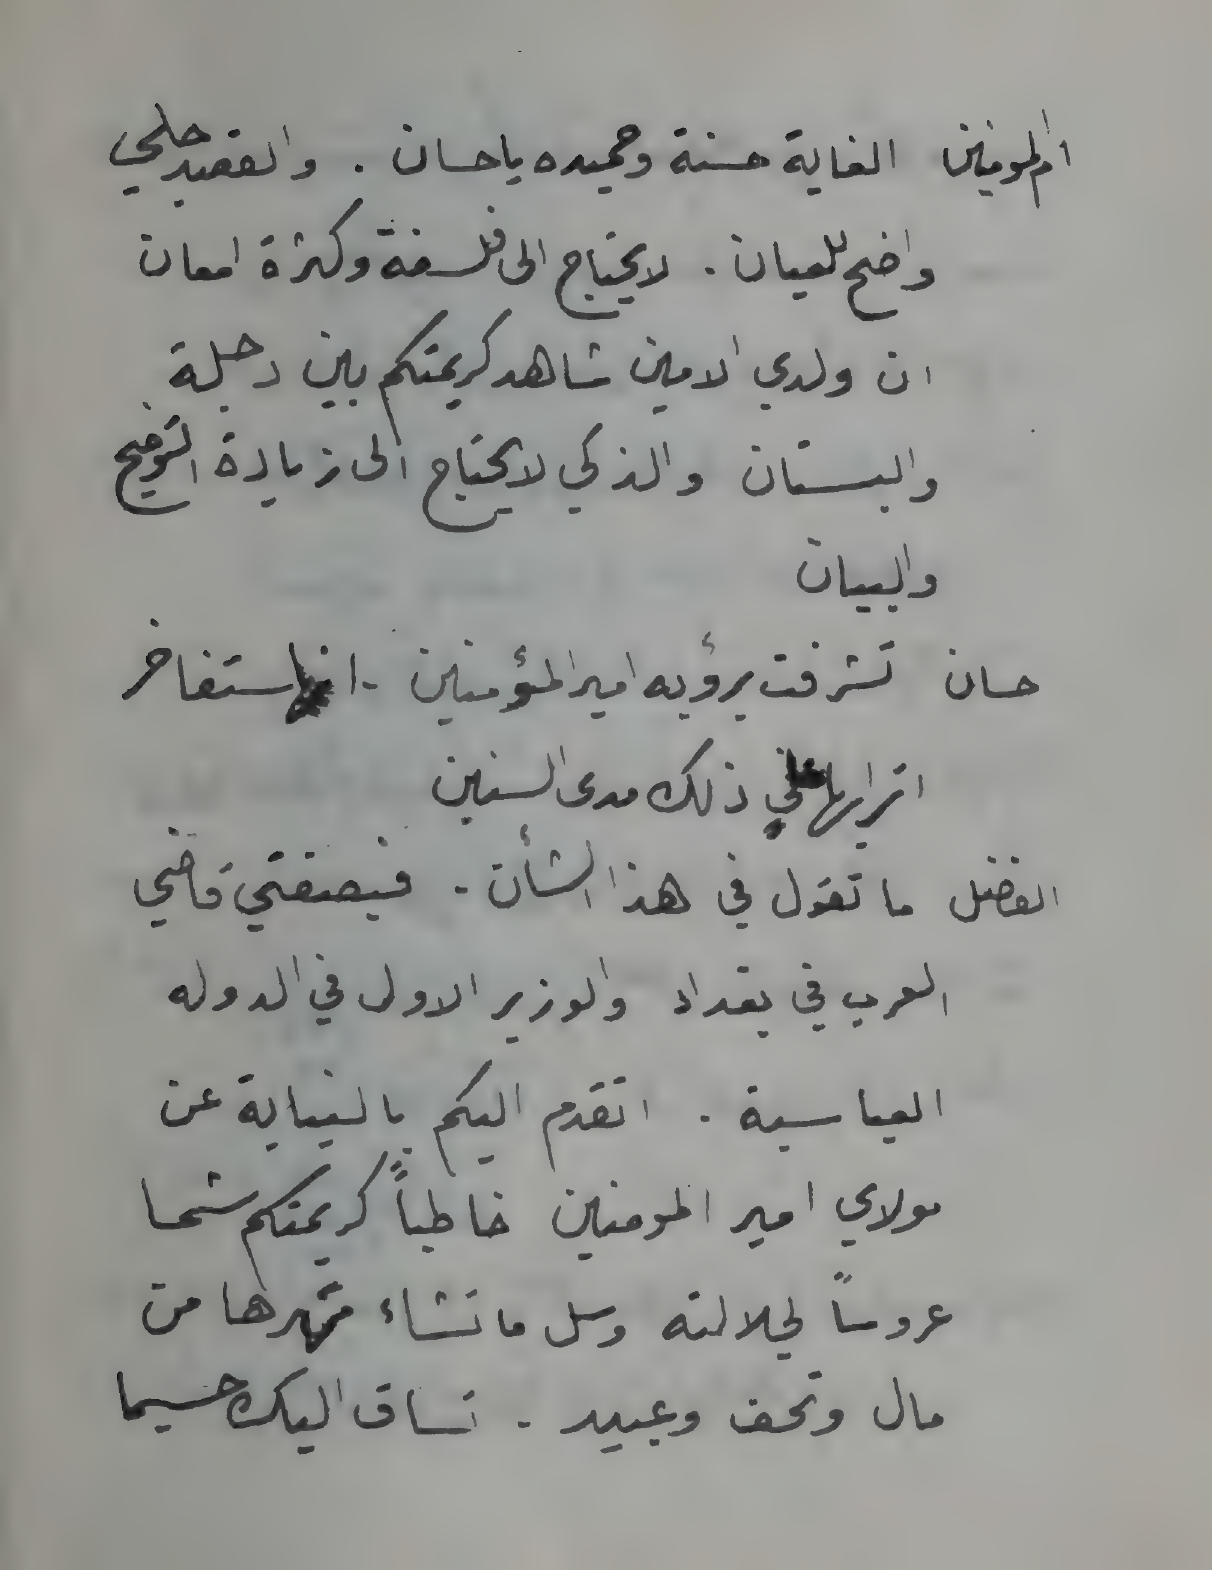 ام المومنين الغاية حسنة وحميده ياحسان . والقصد جلي
واضح للعيان . لايحتاج الى فلسفة وكثرة امعان
ان ولدي الامين شاهد كريمتكم بين دجلة
والبستان والذكي لايحتاج الى زيادة التوضيح
والبيان
حسان تشرفت برؤيه امير المؤمنين - انها ستفاخر
اترابها في ذلك مدى السنين
الفضل ما تقول في هذا الشأن - فبصفتي قاضي
العرب في بغداد والوزير الاول في الدوله
العباسية . اتقدم اليكم بالنيابة عن
مولاي امير المومنين خاطباً كريمتكم شما
عروساً لجلالته وسل ماتشاء مهرها من
مال وتحف وعبيد - تساق اليك حسبما